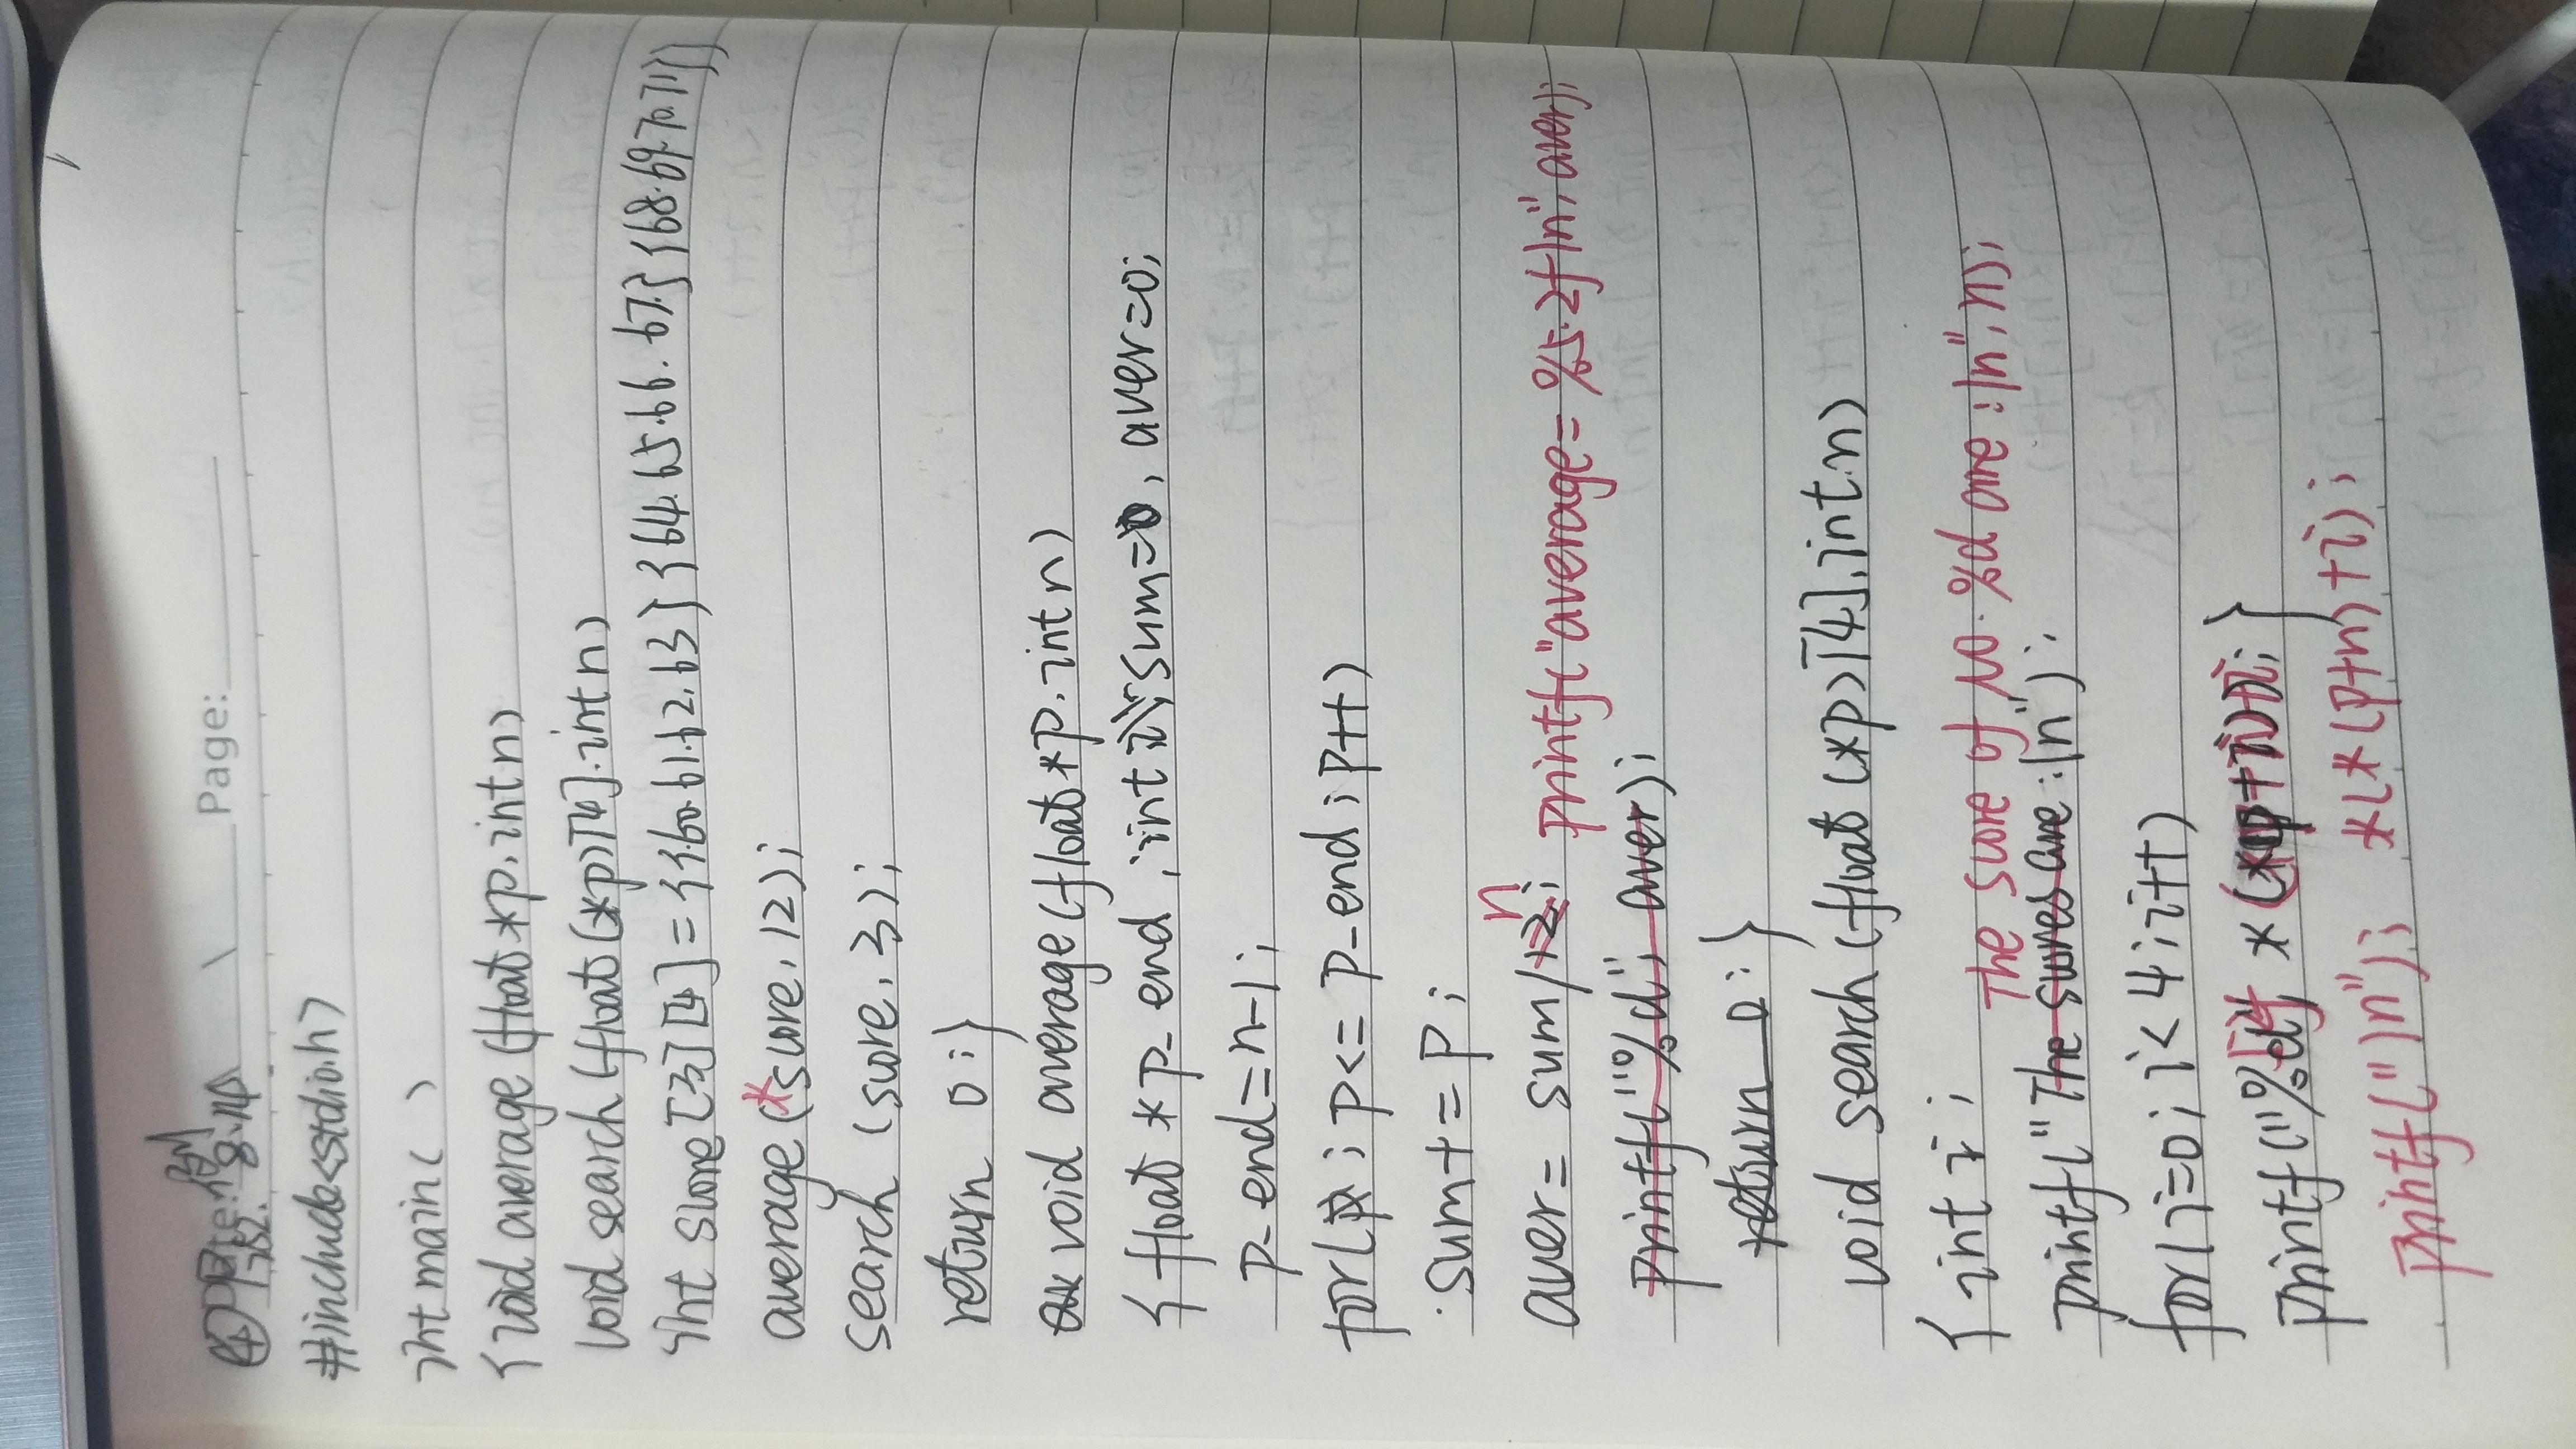 ④ P252. 例8.14 Page:
#include<stdio.h>
int main( )
{void average(float *p, int n)
void search(float(*p)[4], int n)
int score[3][4]={{60.61.62.63}{64.65.66.67}{68.69.70.71}}
average(*score, 12);
search (score, 3);
return 0;}
void average(float *p, int n)
{float *p_end ; int sum=0, aver=0;
p_end=n-1;
for( ; p<= p_end ; p++)
sum+=p;
aver= sum/12; n printf("average= %5.2f\n", aver);
printf("%d", aver);
return 0;}
void search (float (*p)[4], int n)
{int i;
The score of NO.%d are:\n", n);
printf("The scores are:\n");
for(i=0; i<4; i++)
printf("% *( +i) ; }
printf("\n"); *(*(p+n)+i);